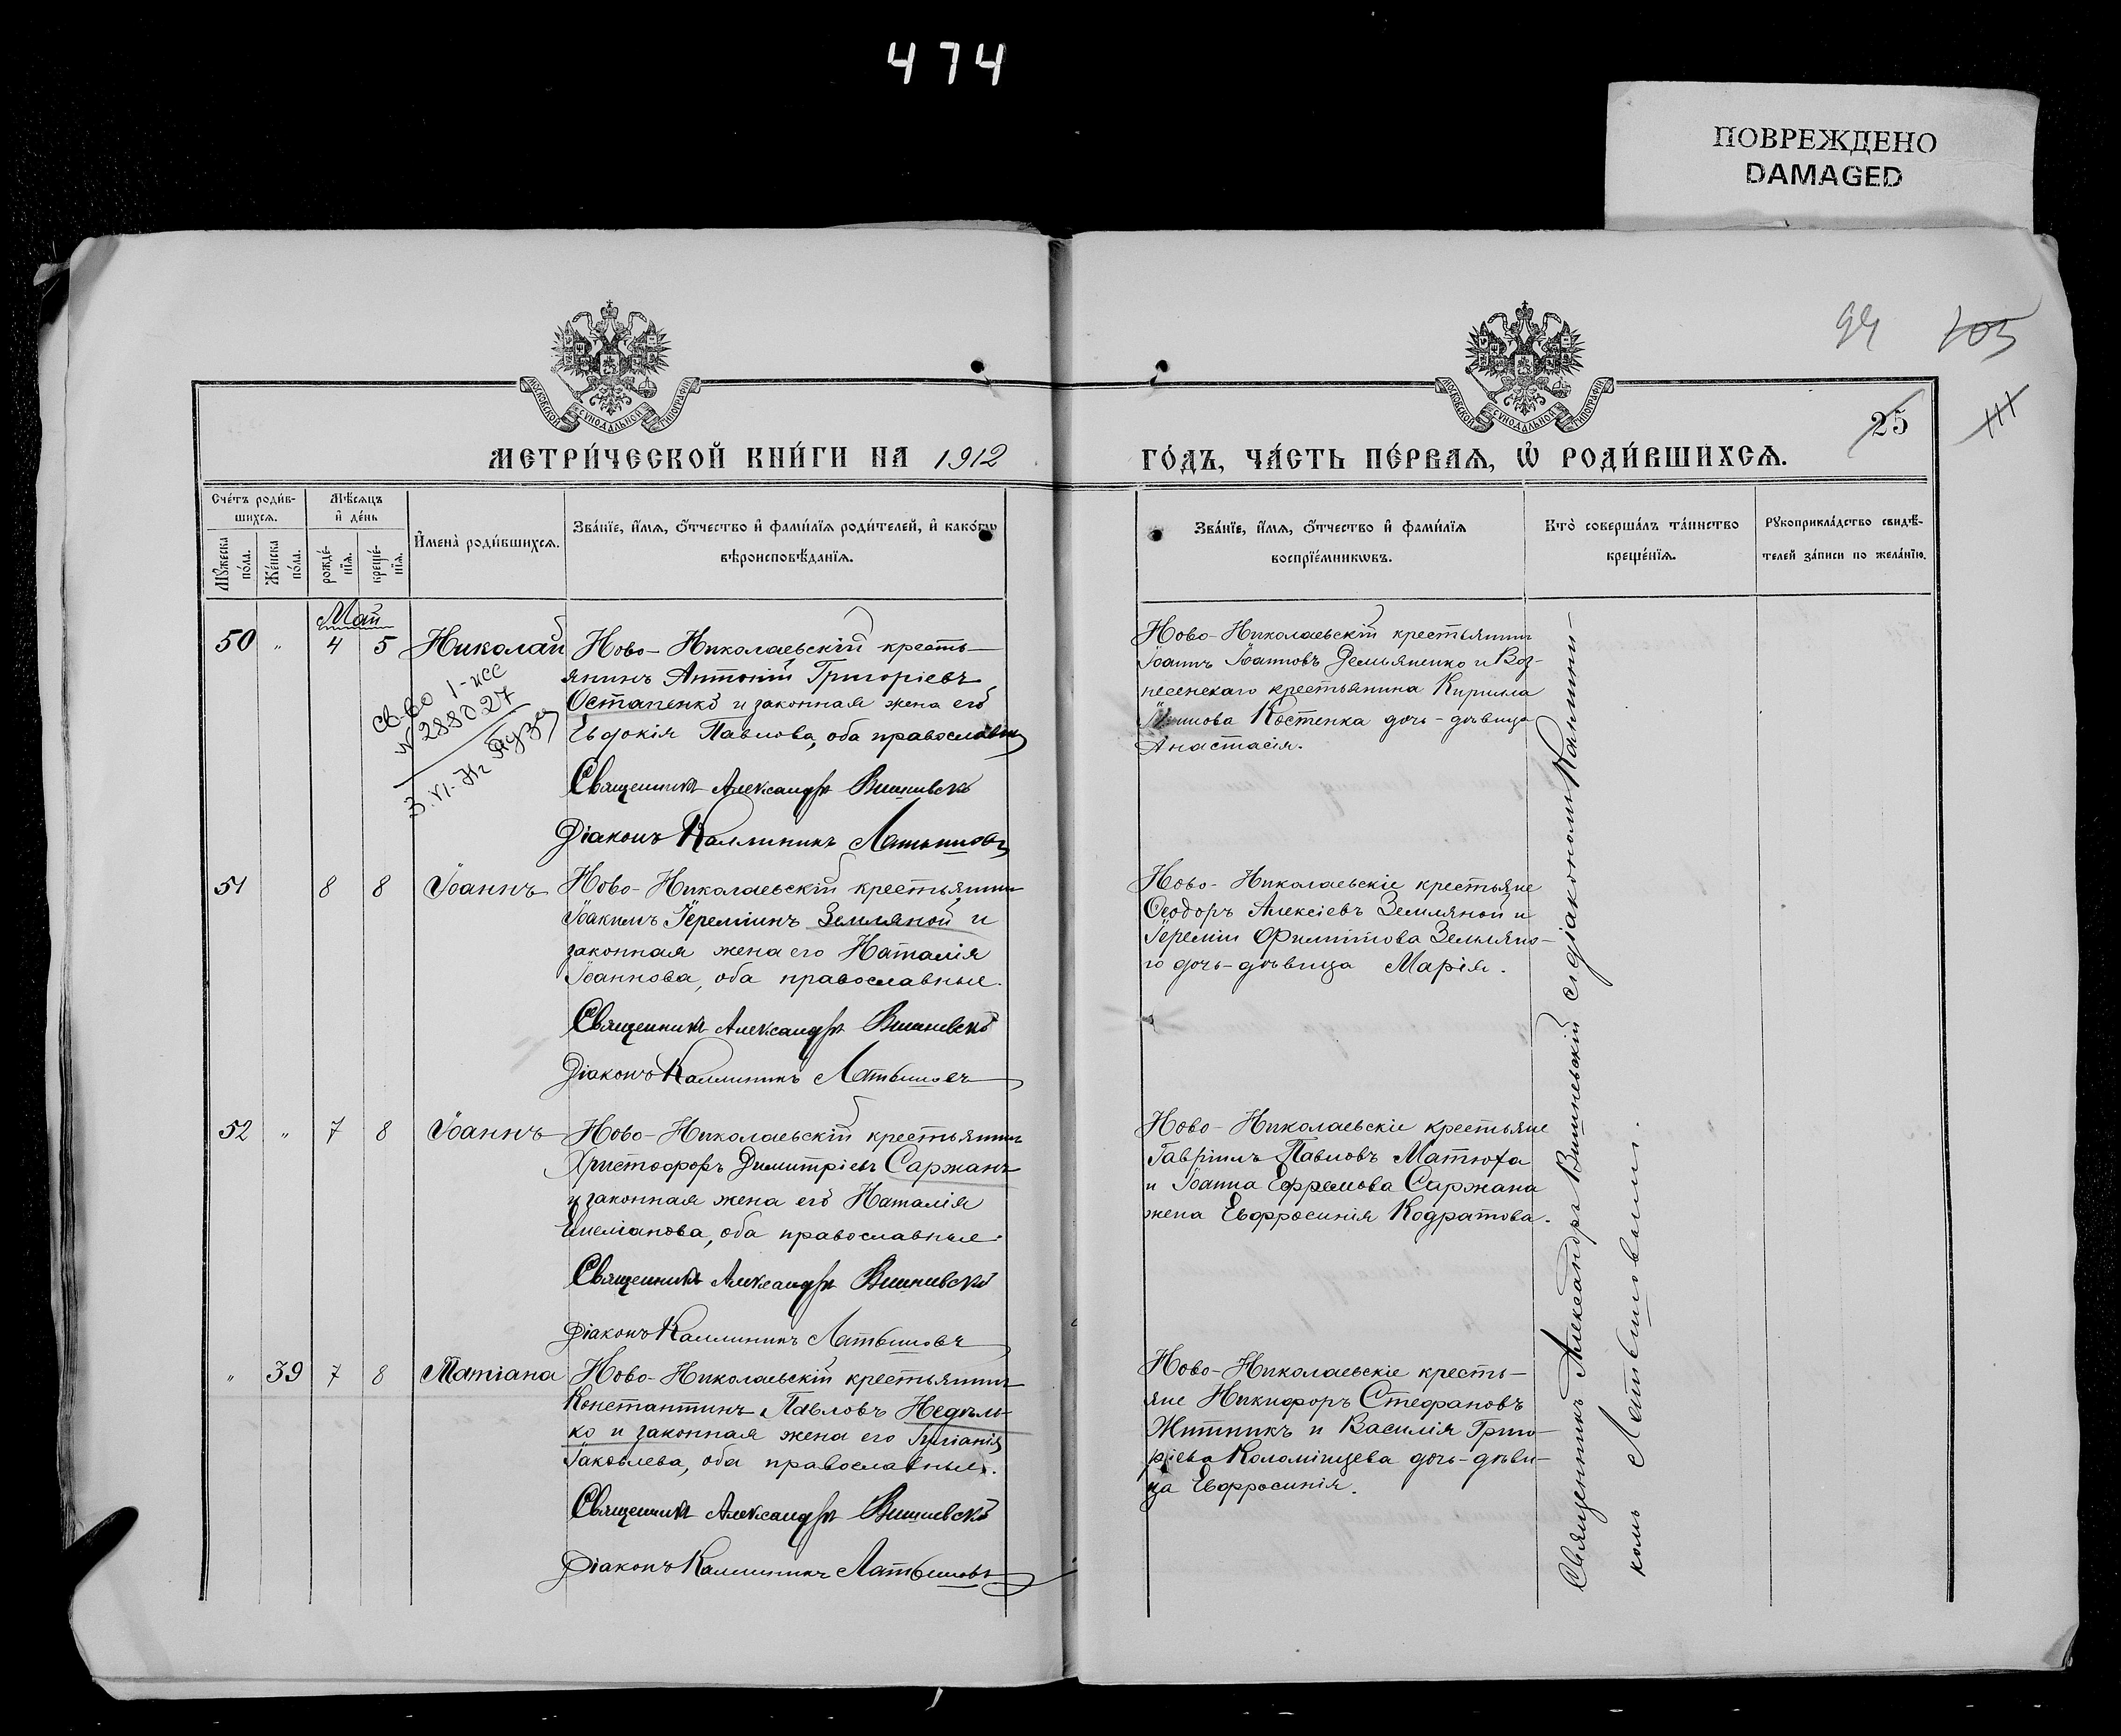 474
ПОВРЕЖДЕНО
DAMAGED
94 105
111
25
МОСКОВСКОЙ СѴНОДАЛЬНОЙ ТИПОГРАФІИ
МОСКОВСКОЙ СѴНОДАЛЬНОЙ ТИПОГРАФІИ
МЕТРИ́ЧЕСКОЙ КНИ́ГИ НА 1912
ГО́ДЪ, ЧА́СТЬ ПЕ́РВАѦ, Ѡ҆ РОДИ́ВШИХСѦ.
Сче́тъ роди́в-
шихсѧ.
Мѣ́сѧцъ
и҆ де́нь
Мꙋ́жеска
по́ла.
Же́нска
по́ла.
рожде́-
нїѧ.
креще́-
нїѧ.
И҆мена̀ роди́вшихсѧ.
Зва́нїе, и҆́мѧ, ѻ҆́тчество и҆ фами́лїѧ роди́телей, и҆ како́гѡ
вѣроисповѣ́данїѧ.
Зва́нїе, и҆́мѧ, ѻ҆́тчество и҆ фами́лїѧ
воспрїе́мникѡвъ.
Кто̀ соверша́лъ та́инство
креще́нїѧ.
Рꙋкоприкла́дство свидѣ́-
телей за́писи по жела́нїю.
Май
50 " 4 5 Николай
Ново-Николаевскій кресть-
янинъ Антоній Григоріевъ
Остапенко и законная жена его
Евдокія Павлова, оба православн
Священникъ Александръ Вишневскій
Діаконъ Каллиникъ Латышовъ
св-во 1-исс
N 288027
Ново-Николаевскій крестьянинъ
Іоаннъ Іоанновъ Демьяненко и Воз-
несенскаго крестьянина Кирилла
Костенка дочь-дѣвица
Анастасія.
51 8 8 Іоаннъ
Ново-Николаевскій крестьянинъ
Іоакимъ Іереміинъ Земляной и
законная жена его Наталія
Іоаннова, оба православные.
Священникъ Александръ Вишневскій
Діаконъ Каллиникъ Латышовъ
Ново-Николаевскіе крестьяне
Ѳеодоръ Алексіевъ Земляной и
Іереміи Филиппова Земляно-
го дочь-дѣвица Марія.
52 " 7 8 Іоаннъ
Ново-Николаевскій крестьянинъ
Христофоръ Димитріевъ Саржанъ
и законная жена его Наталія
Емеліанова, оба православные.
Священникъ Александръ Вишневскій
Діаконъ Каллиникъ Латышовъ
Ново-Николаевскіе крестьяне
Гавріилъ Павловъ Матюха
и Іоанна Ефремова Саржана
жена Евфросинія Кодратова.
" 39 7 8 Татіана
Ново-Николаевскій крестьянинъ
Константинъ Павловъ Недѣль-
ко и законная жена его Іуліанія
Іаковлева, оба православные.
Священникъ Александръ Вишневскій
Діаконъ Каллиникъ Латышовъ
Ново-Николаевскіе кресть-
яне Никифоръ Стефановъ
Житникъ и Василія Григо-
ріева Коломійцева дочь-дѣви-
ца Евфросинія.
Священникъ Александръ Вишневскій съ діакономъ Каллини-
комъ Латышовымъ.